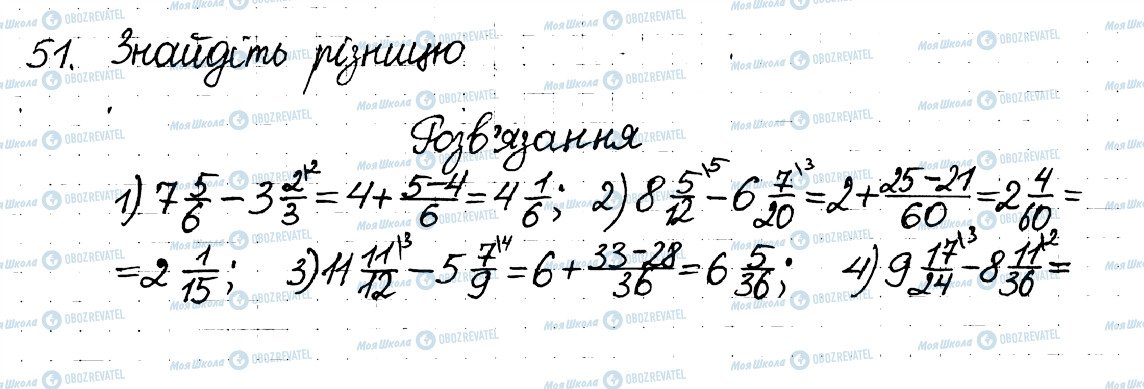 51. Знайдіть різницю
Розв'язання
1) 7 5/6 − 3 2/3\2 = 4 + (5−4)/6 = 4 1/6; 2) 8 5/12\5 − 6 7/20\3 = 2 + (25−21)/60 = 2 4/60 =
= 2 1/15; 3) 11 11/12\3 − 5 7/9\4 = 6 + (33−28)/36 = 6 5/36; 4) 9 17/24\3 − 8 11/36\2 =